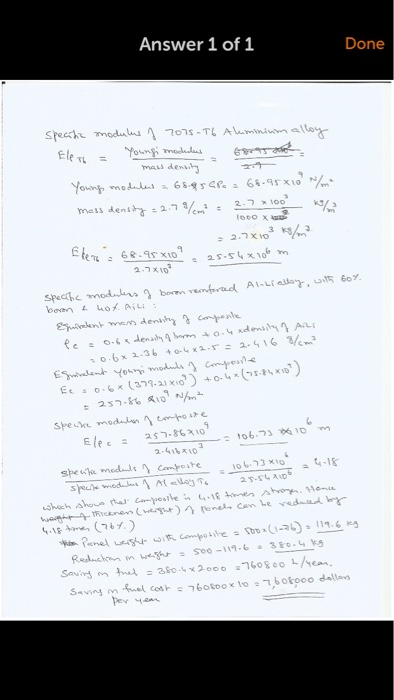 Answer 1 of 1
Done
Specific modulus of 7075-T6 Aluminium alloy
E/ρ T6 = Young's modulus / mass density =
Young's modulus = 68.95 GPa = 68.95 x 10⁹ N/m²
mass density = 2.7 g/cm³ = 2.7 x 100³ / 1000 kg/m³
= 2.7 x 10³ kg/m³
E/ρ T6 = 68.95 x 10⁹ / 2.7 x 10³ = 25.54 x 10⁶ m
Specific modulus of boron reinforced Al-Li alloy, with 60%
boron & 40% AlLi :
Equivalent mass density of composite
ρc = 0.6 x density of boron + 0.4 x density of AlLi
= 0.6 x 2.36 + 0.4 x 2.5 = 2.416 g/cm³
Equivalent young's modulus of composite
Ec = 0.6 x (379.21 x 10⁹) + 0.4 x (75.84 x 10⁹)
= 257.86 x 10⁹ N/m²
Specific modulus of composite
E/ρ c = 257.86 x 10⁹ / 2.416 x 10³ = 106.73 x 10⁶ m
specific modulus of composite / specific modulus of Al alloy T6 = 106.73 x 10⁶ / 25.54 x 10⁶ = 4.18
which shows that composite is 4.18 times strong. Hence
thickness (weight) of panels can be reduced by
4.18 times (76%)
Panel weight with composite = 500 x (1-.76) = 119.6 kg
Reduction in weight = 500 - 119.6 = 380.4 kg
Saving in fuel = 380.4 x 2000 = 760800 L/year.
Saving in fuel cost = 760800 x 10 = 7,608,000 dollars
per year